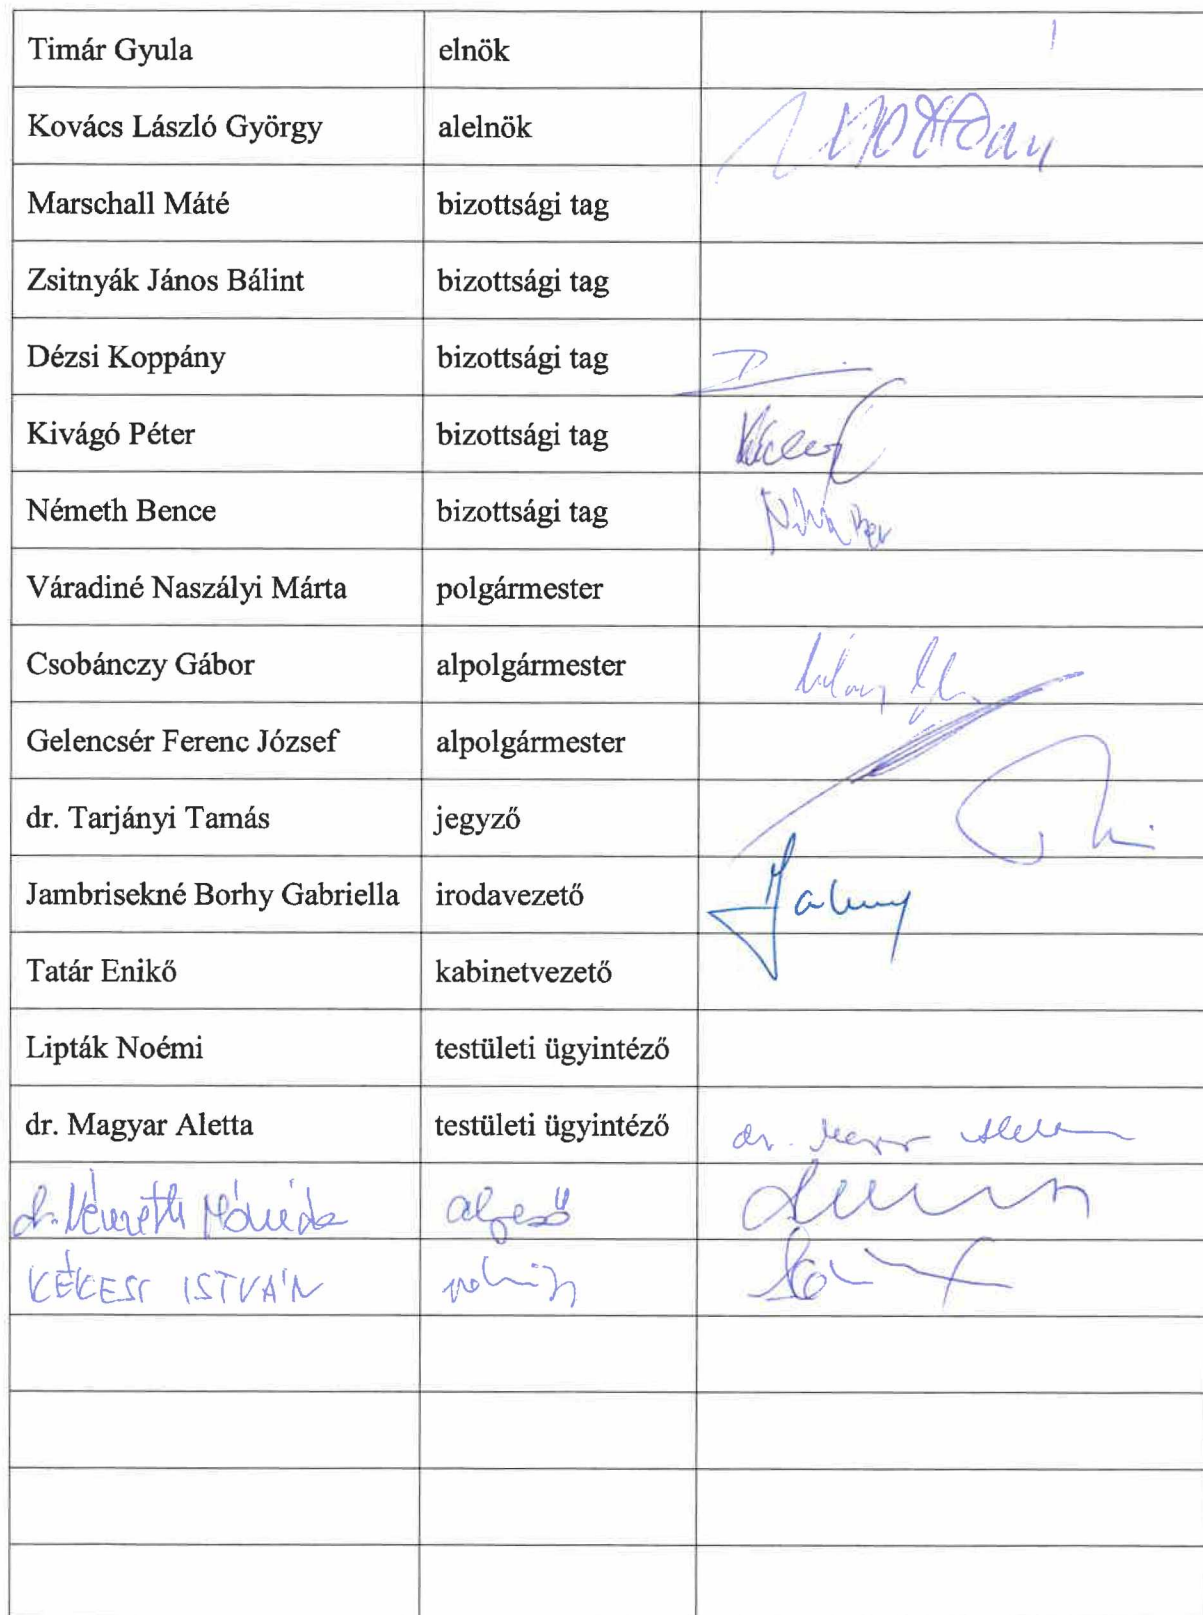 Timár Gyula elnök
Kovács László György alelnök
Marschall Máté bizottsági tag
Zsitnyák János Bálint bizottsági tag
Dézsi Koppány bizottsági tag
Kivágó Péter bizottsági tag
Németh Bence bizottsági tag
Váradiné Naszályi Márta polgármester
Csobánczy Gábor alpolgármester
Gelencsér Ferenc József alpolgármester
dr. Tarjányi Tamás jegyző
Jambrisekné Borhy Gabriella irodavezető
Tatár Enikő kabinetvezető
Lipták Noémi testületi ügyintéző
dr. Magyar Aletta testületi ügyintéző dr. Magyar Aletta
dr. Németh Mónika
KÉKESI ISTVÁN